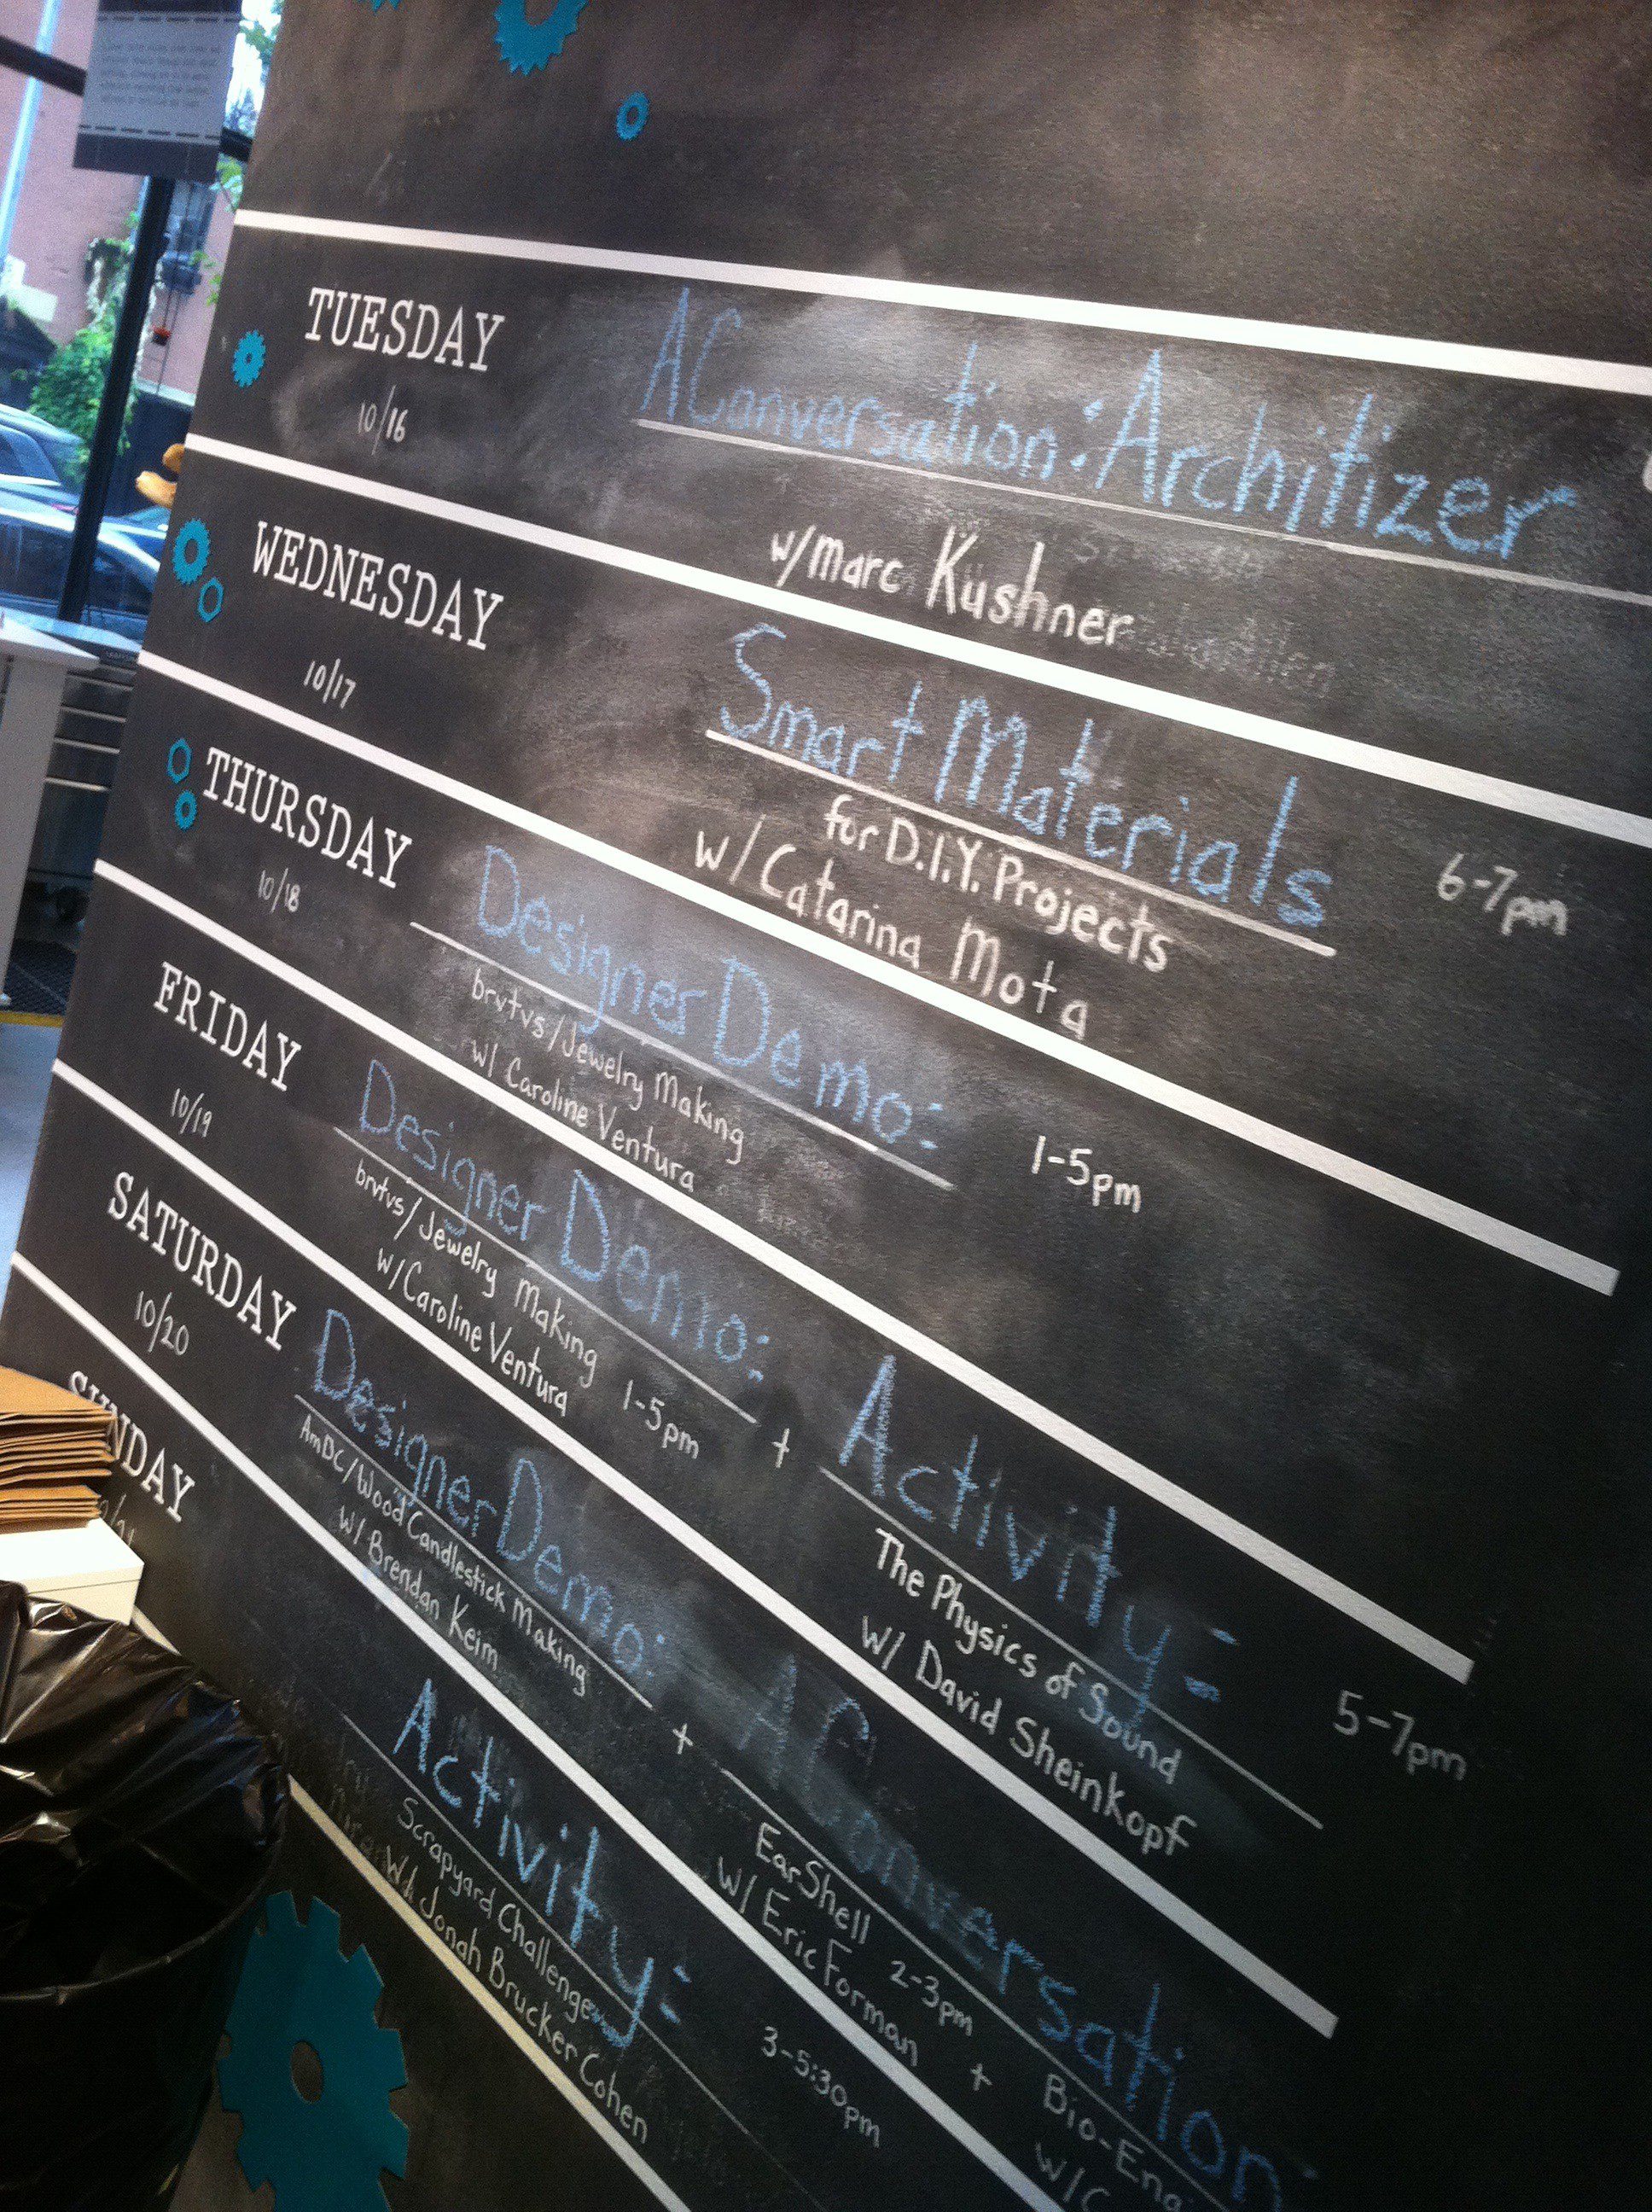 TUESDAY
10/16
A Conversation: Architizer
w/ marc Kushner
WEDNESDAY
10/17
Smart Materials
for D.I.Y. Projects
w/ Catarina Mota
6-7pm
THURSDAY
10/18
Designer Demo:
brvtvs/Jewelry Making
w/ Caroline Ventura
1-5pm
FRIDAY
10/19
Designer Demo:
brvtvs/Jewelry Making
w/ Caroline Ventura
1-5pm
+
Activity:
The Physics of Sound
w/ David Sheinkopf
5-7pm
SATURDAY
10/20
Designer Demo:
AmDC/Wood Candlestick Making
w/ Brendan Keim
+
A Conversation
EarShell
w/ Eric Forman
2-3pm
+
Bio-Eng
w/ C
SUNDAY
Activity:
Scrapyard Challenge
w/ Jonah Brucker Cohen
3-5:30pm